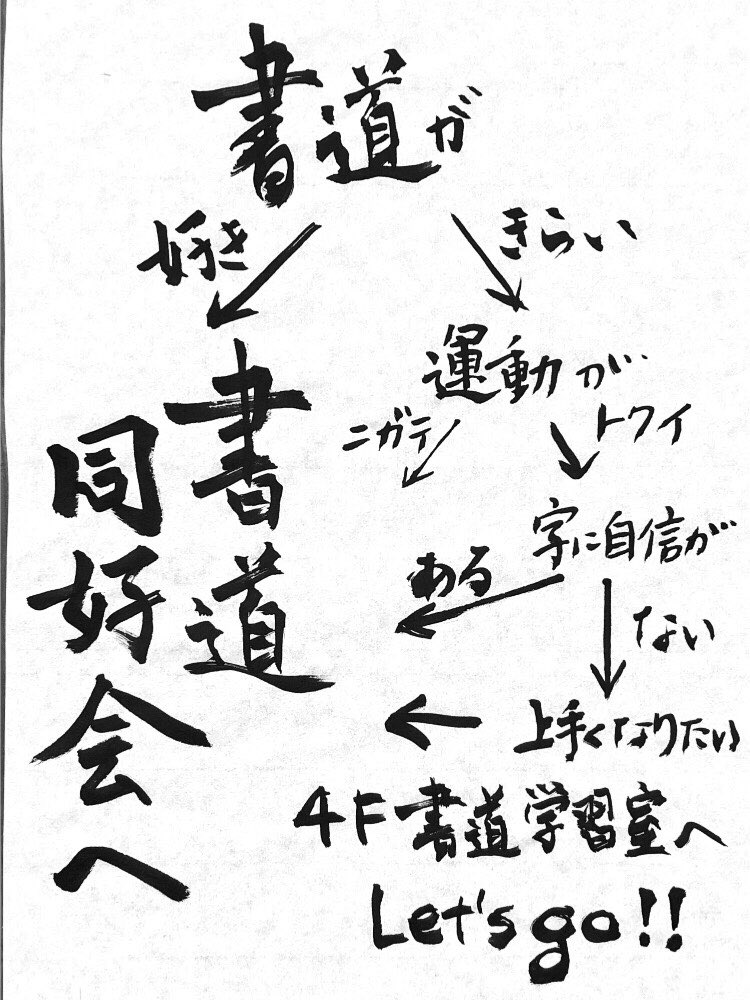 書道が
好き
きらい
運動が…
ニガテ
トクイ
字に自信が
ある
ない
上手くなりたい
書道
同好会へ
4F書道学習室へ
Let's go!!